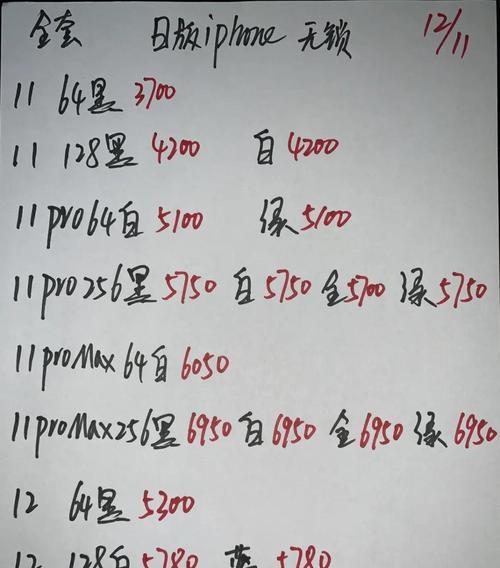 全套 日版iphone 无锁 12/11
11 64黑 3700
11 128黑 4200 白 4200
11 pro 64白 5100 绿 5100
11 pro 256黑 5750 白 5750 金 5700 绿 5750
11 pro Max 64白 6050
11 pro Max 256黑 6950 白 6950 金 6950 绿 6950
12 64黑 5300
12 128白 5780 蓝 5780